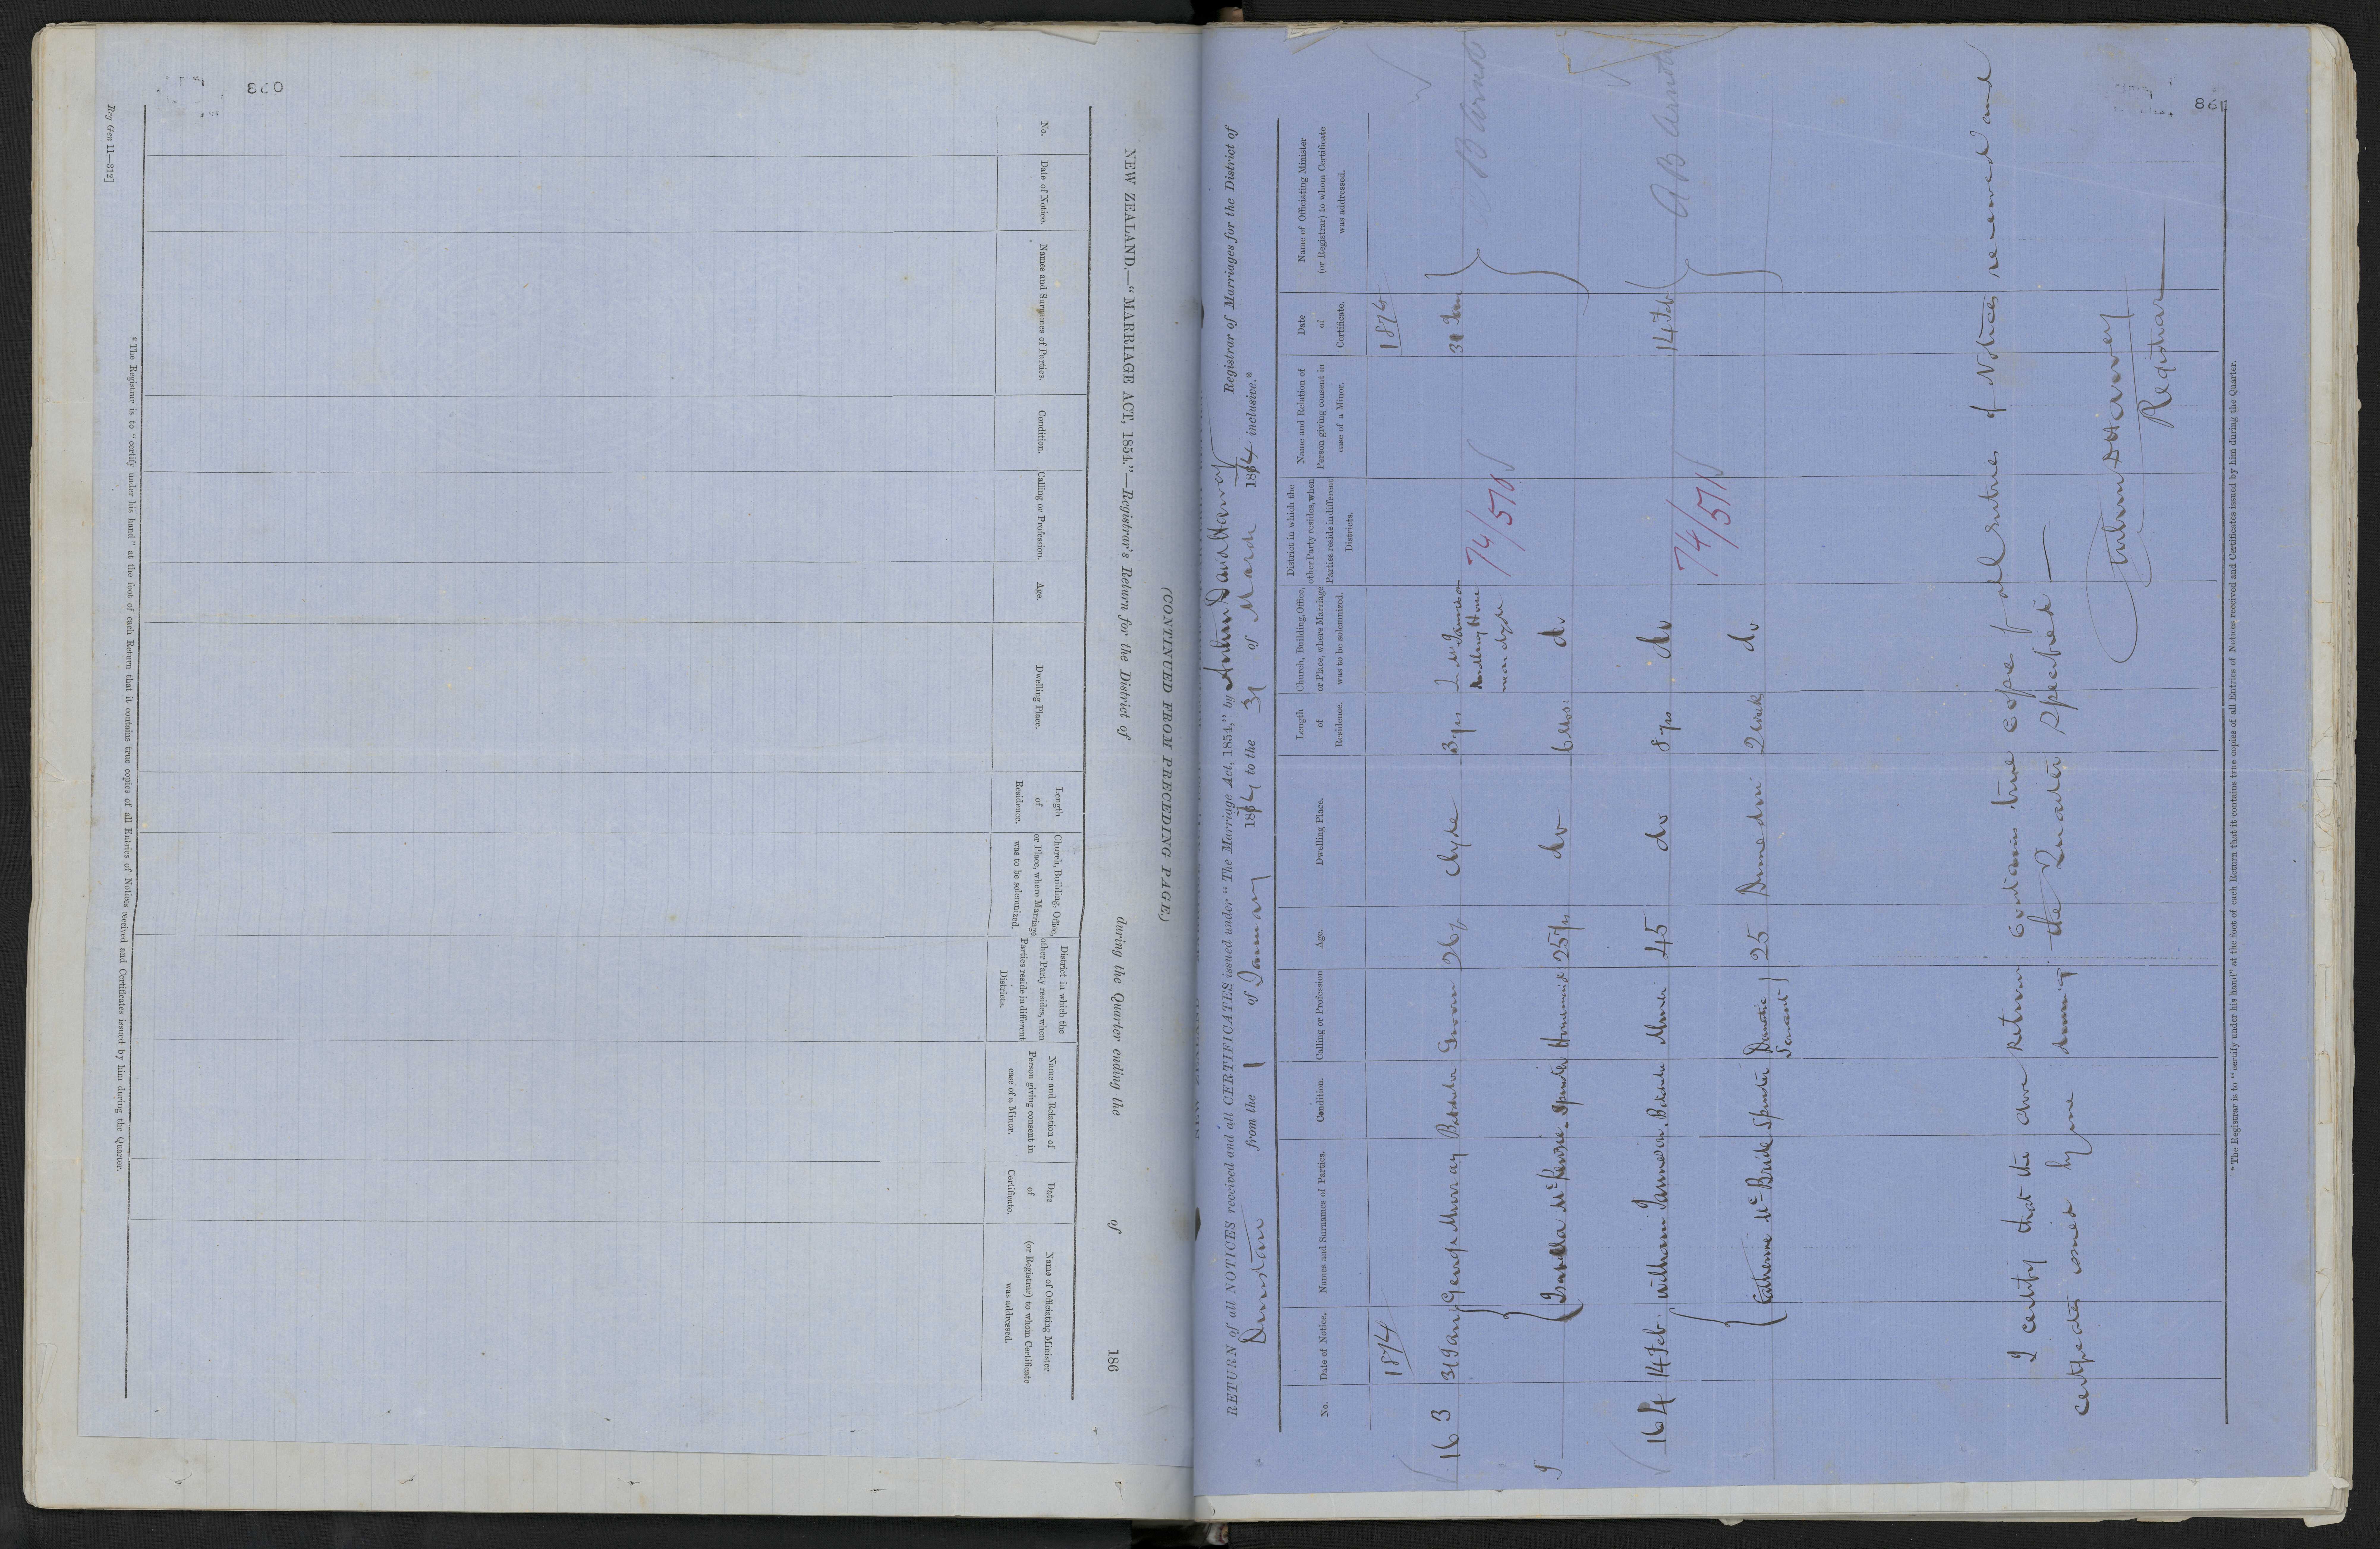 860
NEW ZEALAND.—"MARRIAGE ACT, 1854."—Registrar's Return for the District of during the Quarter ending the of 186
(CONTINUED FROM PRECEDING PAGE.)
No.
Date of Notice.
Names and Surnames of Parties.
Condition.
Calling or Profession.
Age.
Dwelling Place.
Length of Residence.
Church, Building, Office, or Place, where Marriage was to be solemnized.
District in which the other Party resides, when Parties reside in different Districts.
Name and Relation of Person giving consent in case of a Minor.
Date of Certificate.
Name of Officiating Minister (or Registrar) to whom Certificate was addressed.
* The Registrar is to "certify under his hand" at the foot of each Return that it contains true copies of all Entries of Notices received and Certificates issued by him during the Quarter.
Reg Gen 11—312]
861
RETURN of all NOTICES received and all CERTIFICATES issued under "The Marriage Act, 1854," by Arthur David Harvey Registrar of Marriages for the District of
Dunstan from the 1 of January 1874 to the 31 of March 1874 inclusive.*
No.
Date of Notice.
Names and Surnames of Parties.
Condition.
Calling or Profession
Age.
Dwelling Place.
Length of Residence.
Church, Building, Office, or Place, where Marriage was to be solemnized.
District in which the other Party resides, when Parties reside in different Districts.
Name and Relation of Person giving consent in case of a Minor.
Date of Certificate.
Name of Officiating Minister (or Registrar) to whom Certificate was addressed.
1874 1874
163 31 Jany George Murray Bachelor Groom 26 Clyde 3 yrs In Mr Jamieson 31 Jan B Arndt
Dwelling House
near Clyde
74/570
Isabella McKenzie Spinster Housemaid 25 yrs do 6 Mos: do
164 14 Feb. William Jamieson Bachelor Miner 45 do 8 yrs do 14 Feb A B Arndt
74/571
Catherine McBride Spinster Domestic Servant 25 Dunedin 2 Weeks do
I certify that the above Return contains true copies of all Entries of Notices received and
certificates issued by me during the Quarter specified —
Arthur D Harvey
Registrar
* The Registrar is to "certify under his hand" at the foot of each Return that it contains true copies of all Entries of Notices received and Certificates issued by him during the Quarter.